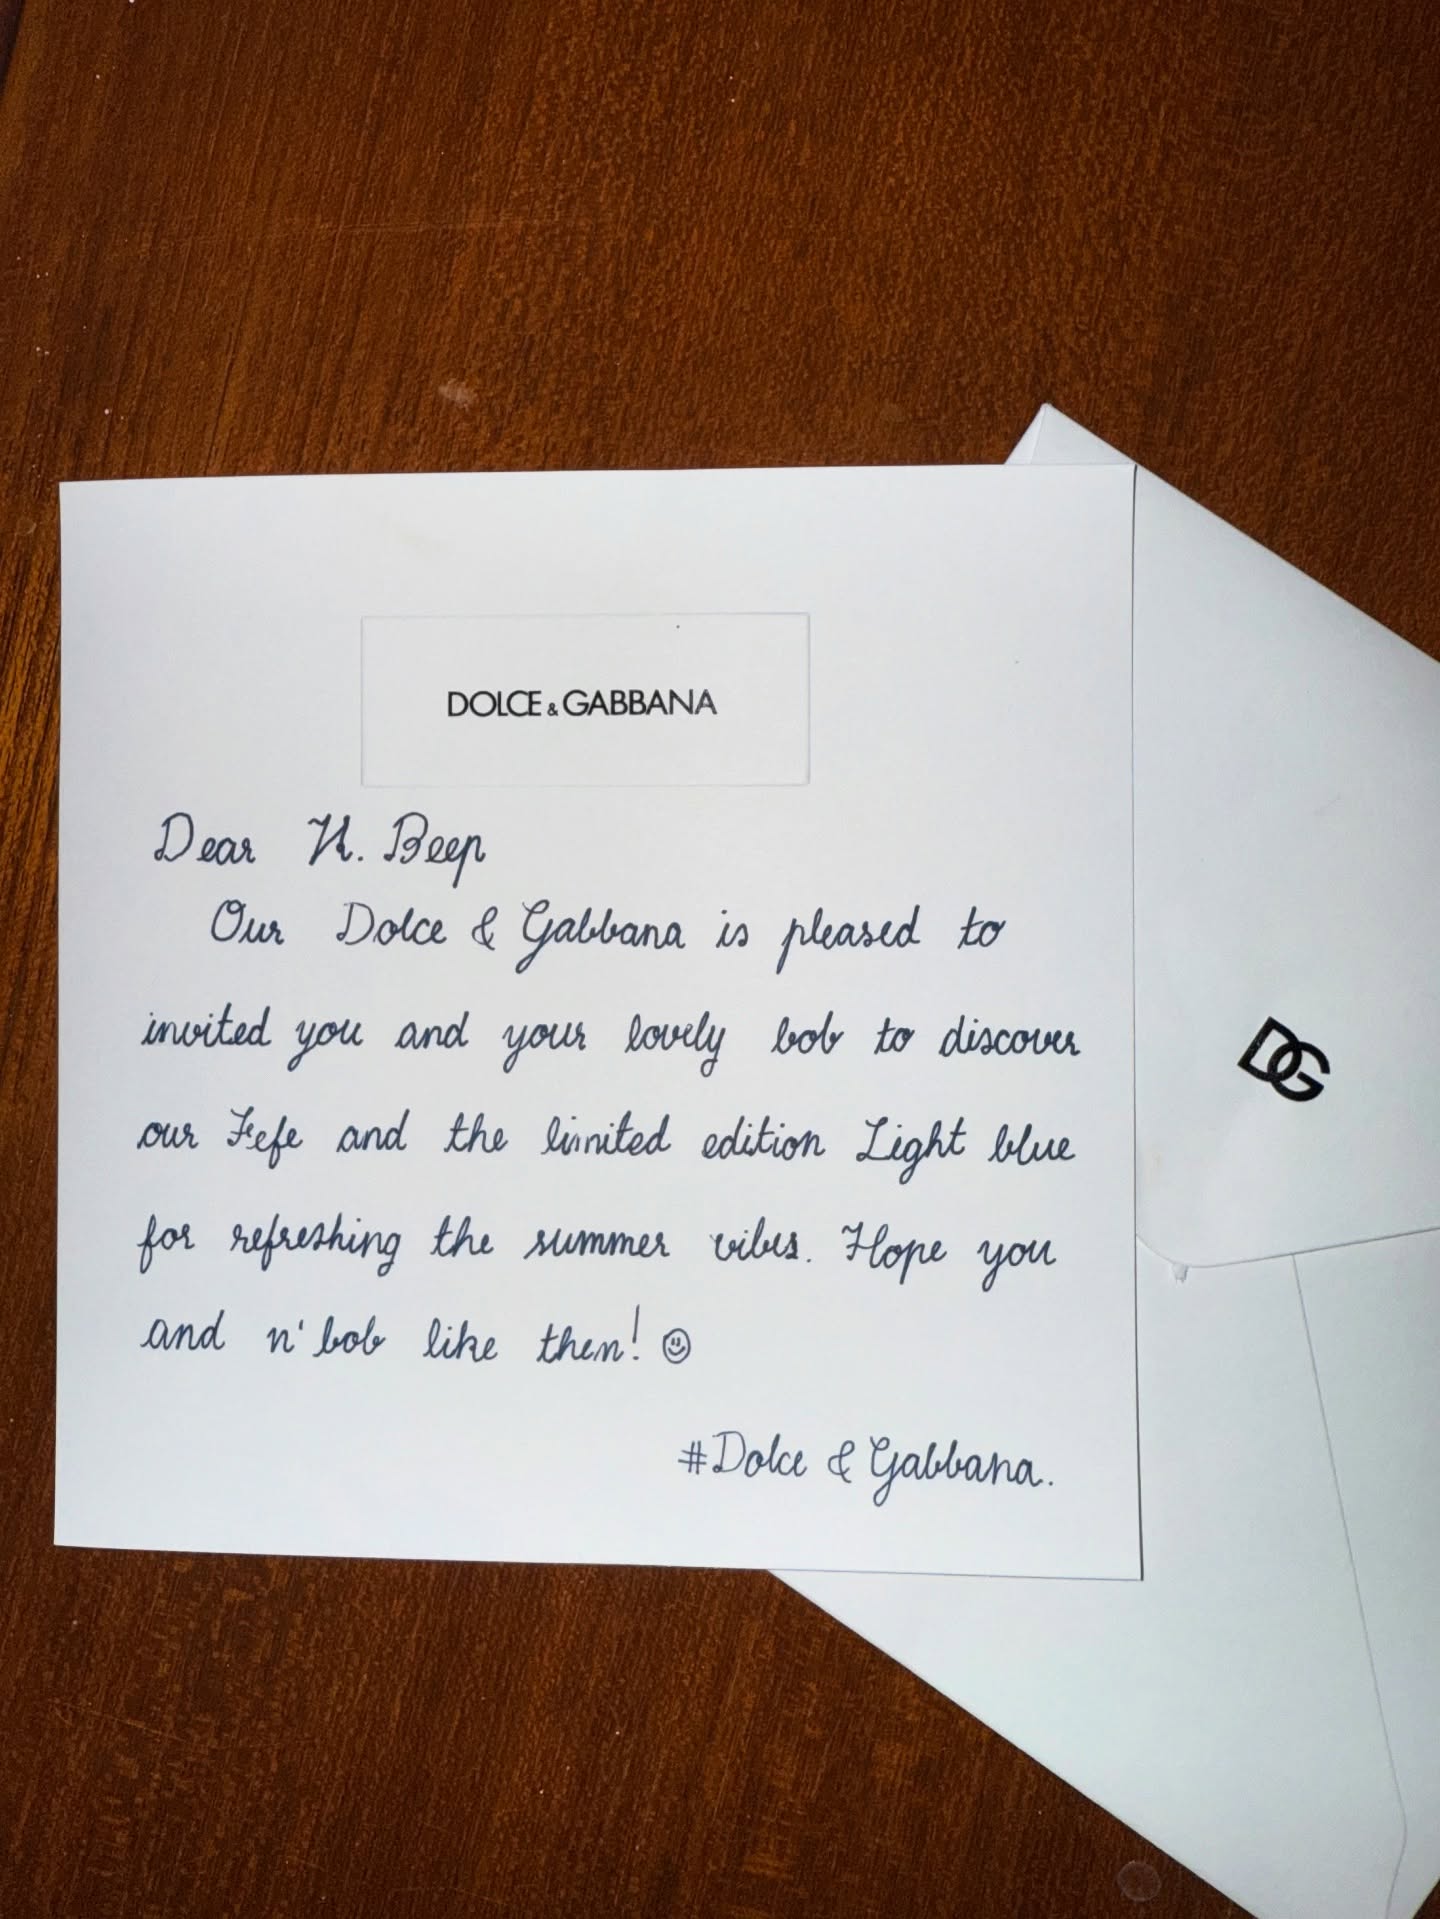 DOLCE & GABBANA
Dear N. Beep
Our Dolce & Gabbana is pleased to
invited you and your lovely bob to discover
our Fefe and the limited edition Light blue
for refreshing the summer vibes. Hope you
and n' bob like then! ☺
#Dolce & Gabbana.
DG